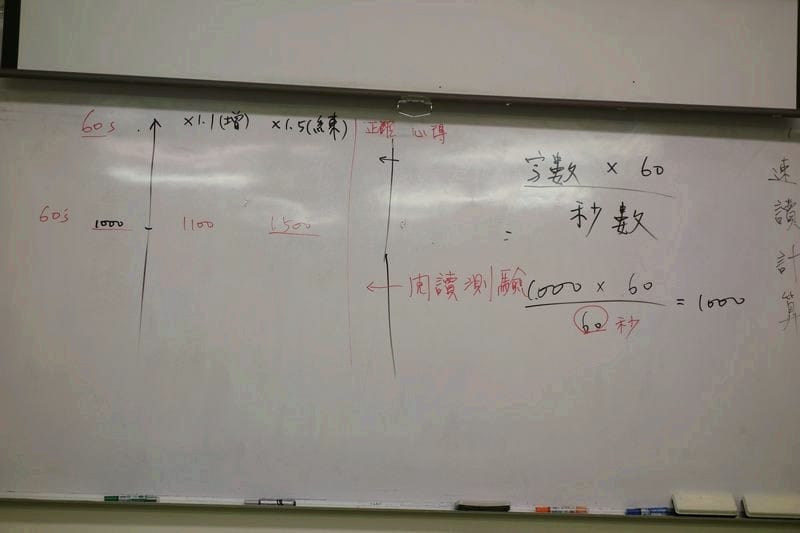 60s ×1.1(增) ×1.5(練) 正確 心得
60s 1000 1100 1500
字數 × 60
秒數
=
閱讀測驗
1000 × 60
60 秒
= 1000
速讀計算